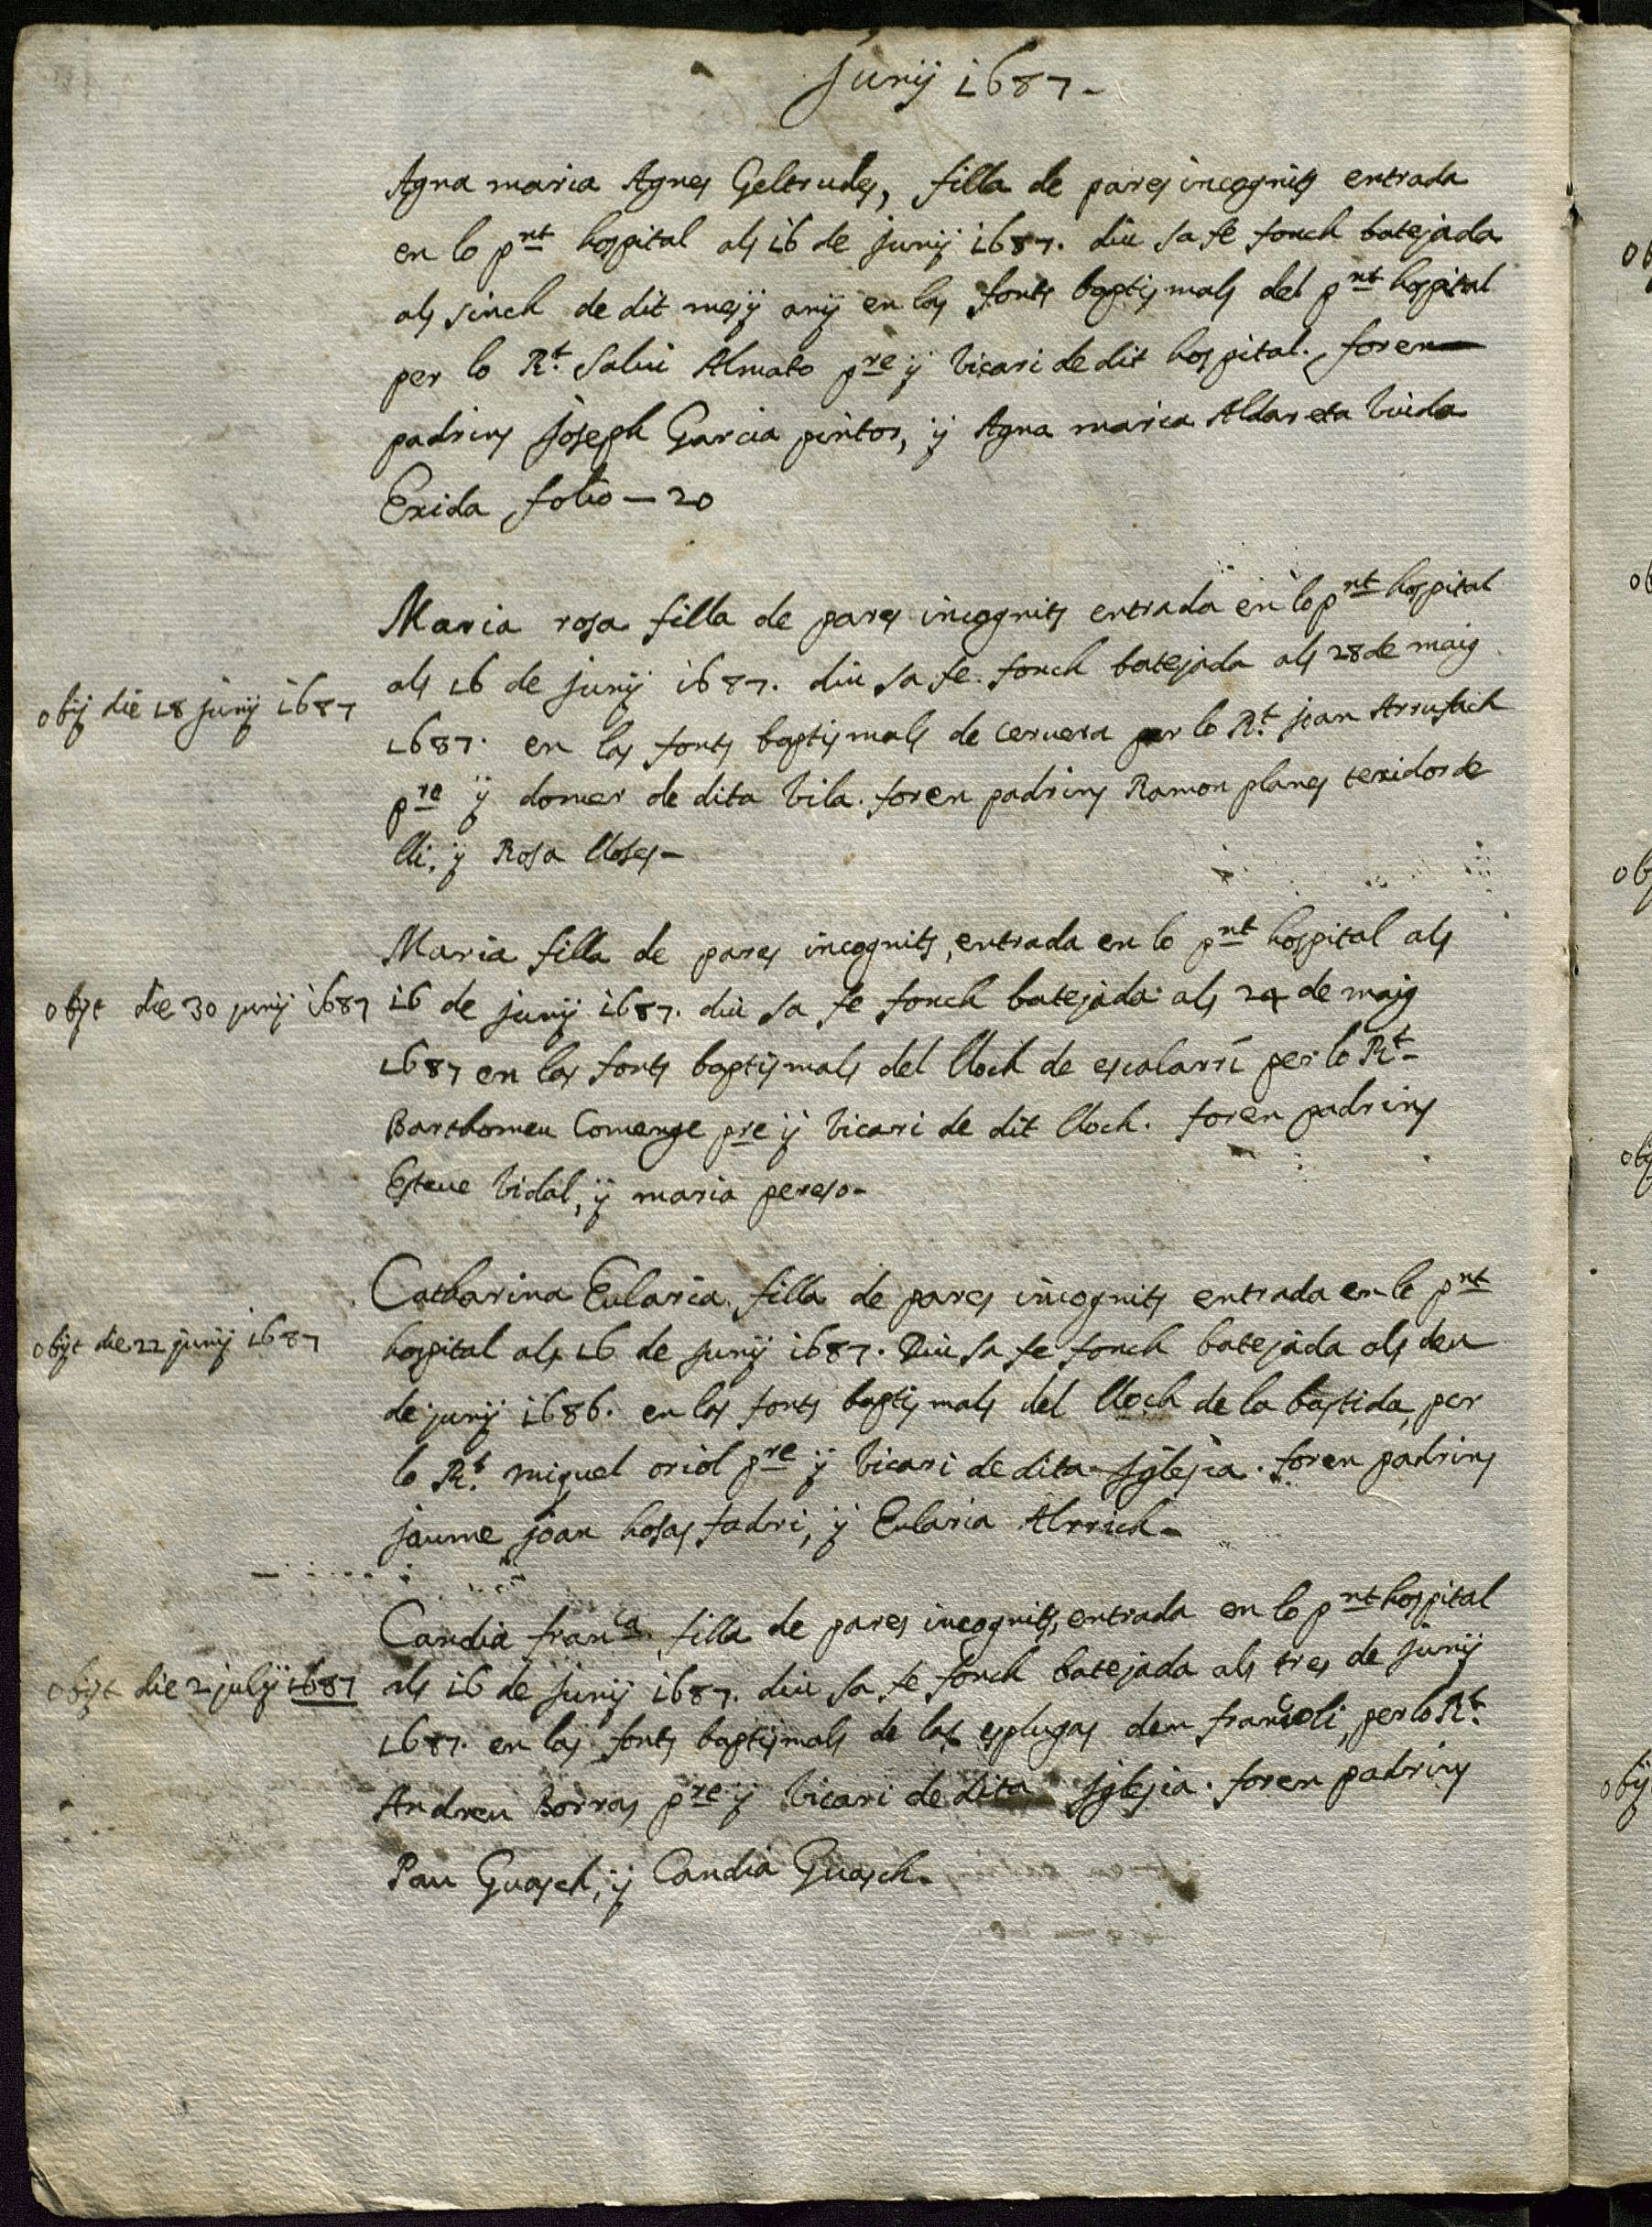 Junÿ 1687-
Agna maria Agnes Geltrudes, filla de pares incognits entrada
en lo pnt hospital als 16 de junÿ 1687. diu sa fe fonch batejada
als sinch de dit mes ÿ anÿ en las fonts baptismals del pnt hospital
per lo Rt. Salui Almato pre ÿ vicari de dit hospital. foren
padrins joseph Garcia pintor, ÿ Agna maria Aldareta viuda
Exida folio - 20
Maria rosa filla de pares incognits entrada en lo pnt hospital
als 16 de junÿ 1687. diu sa fe fonch batejada als 28 de maig
obÿ die 18 junÿ 1687
1687. en las fonts baptismals de ceruera per lo Rt. joan Arrufach
pre ÿ domer de dita vila. foren padrins Ramon planes texidor de
lli, ÿ Rosa lloses-
Maria filla de pares incognits, entrada en lo pnt hospital als
obÿt die 30 junÿ 1687
16 de junÿ 1687. diu sa fe fonch batejada als 24 de maig
1687 en las fonts baptismals del lloch de escalarri per lo Rt-
Barthomeu Comenge pre ÿ vicari de dit lloch. foren padrins
Esteue vidal, ÿ maria pereso-
Catharina Eularia filla de pares incognits entrada en lo pnt
obÿt die 22 junÿ 1687
hospital als 16 de junÿ 1687. Diu sa fe fonch batejada als deu
de junÿ 1686. en las fonts baptismals del lloch de la bastida, per
lo Rt. miquel oriol pre ÿ vicari de dita Jglesia. foren padrins
jaume joan hosas fadri, ÿ Eularia Alrrich-
Candia franca filla de pares incognits, entrada en lo pnt hospital
obÿt die 2 julÿ 1687
als 16 de junÿ 1687. diu sa fe fonch batejada als tres de junÿ
1687. en las fonts baptismals de las esplugas den francoli, per lo Rt.
Andreu Borras pre ÿ vicari de dita Jglesia. foren padrins
Pau Guasch, ÿ Candia Guasch-